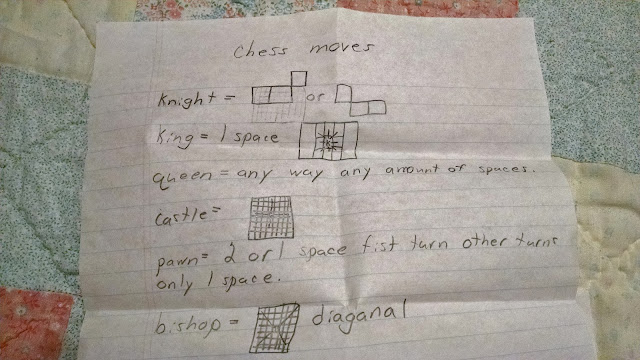 chess moves
knight = or
king = 1 space
queen = any way any amount of spaces.
castle =
pawn = 2 or 1 space fist turn other turns
only 1 space.
bishop = diaganal